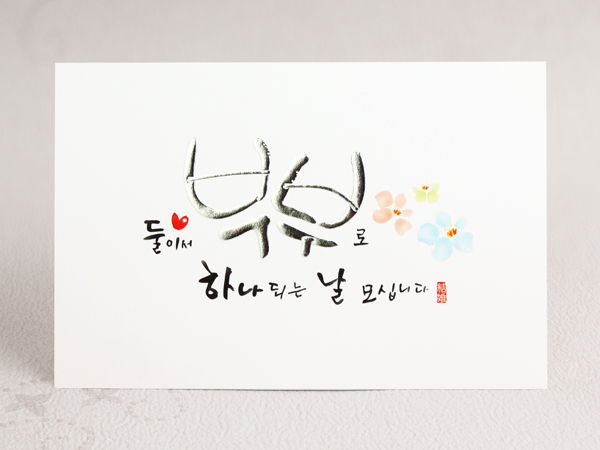 둘이서 부부로
하나 되는 날 모십니다